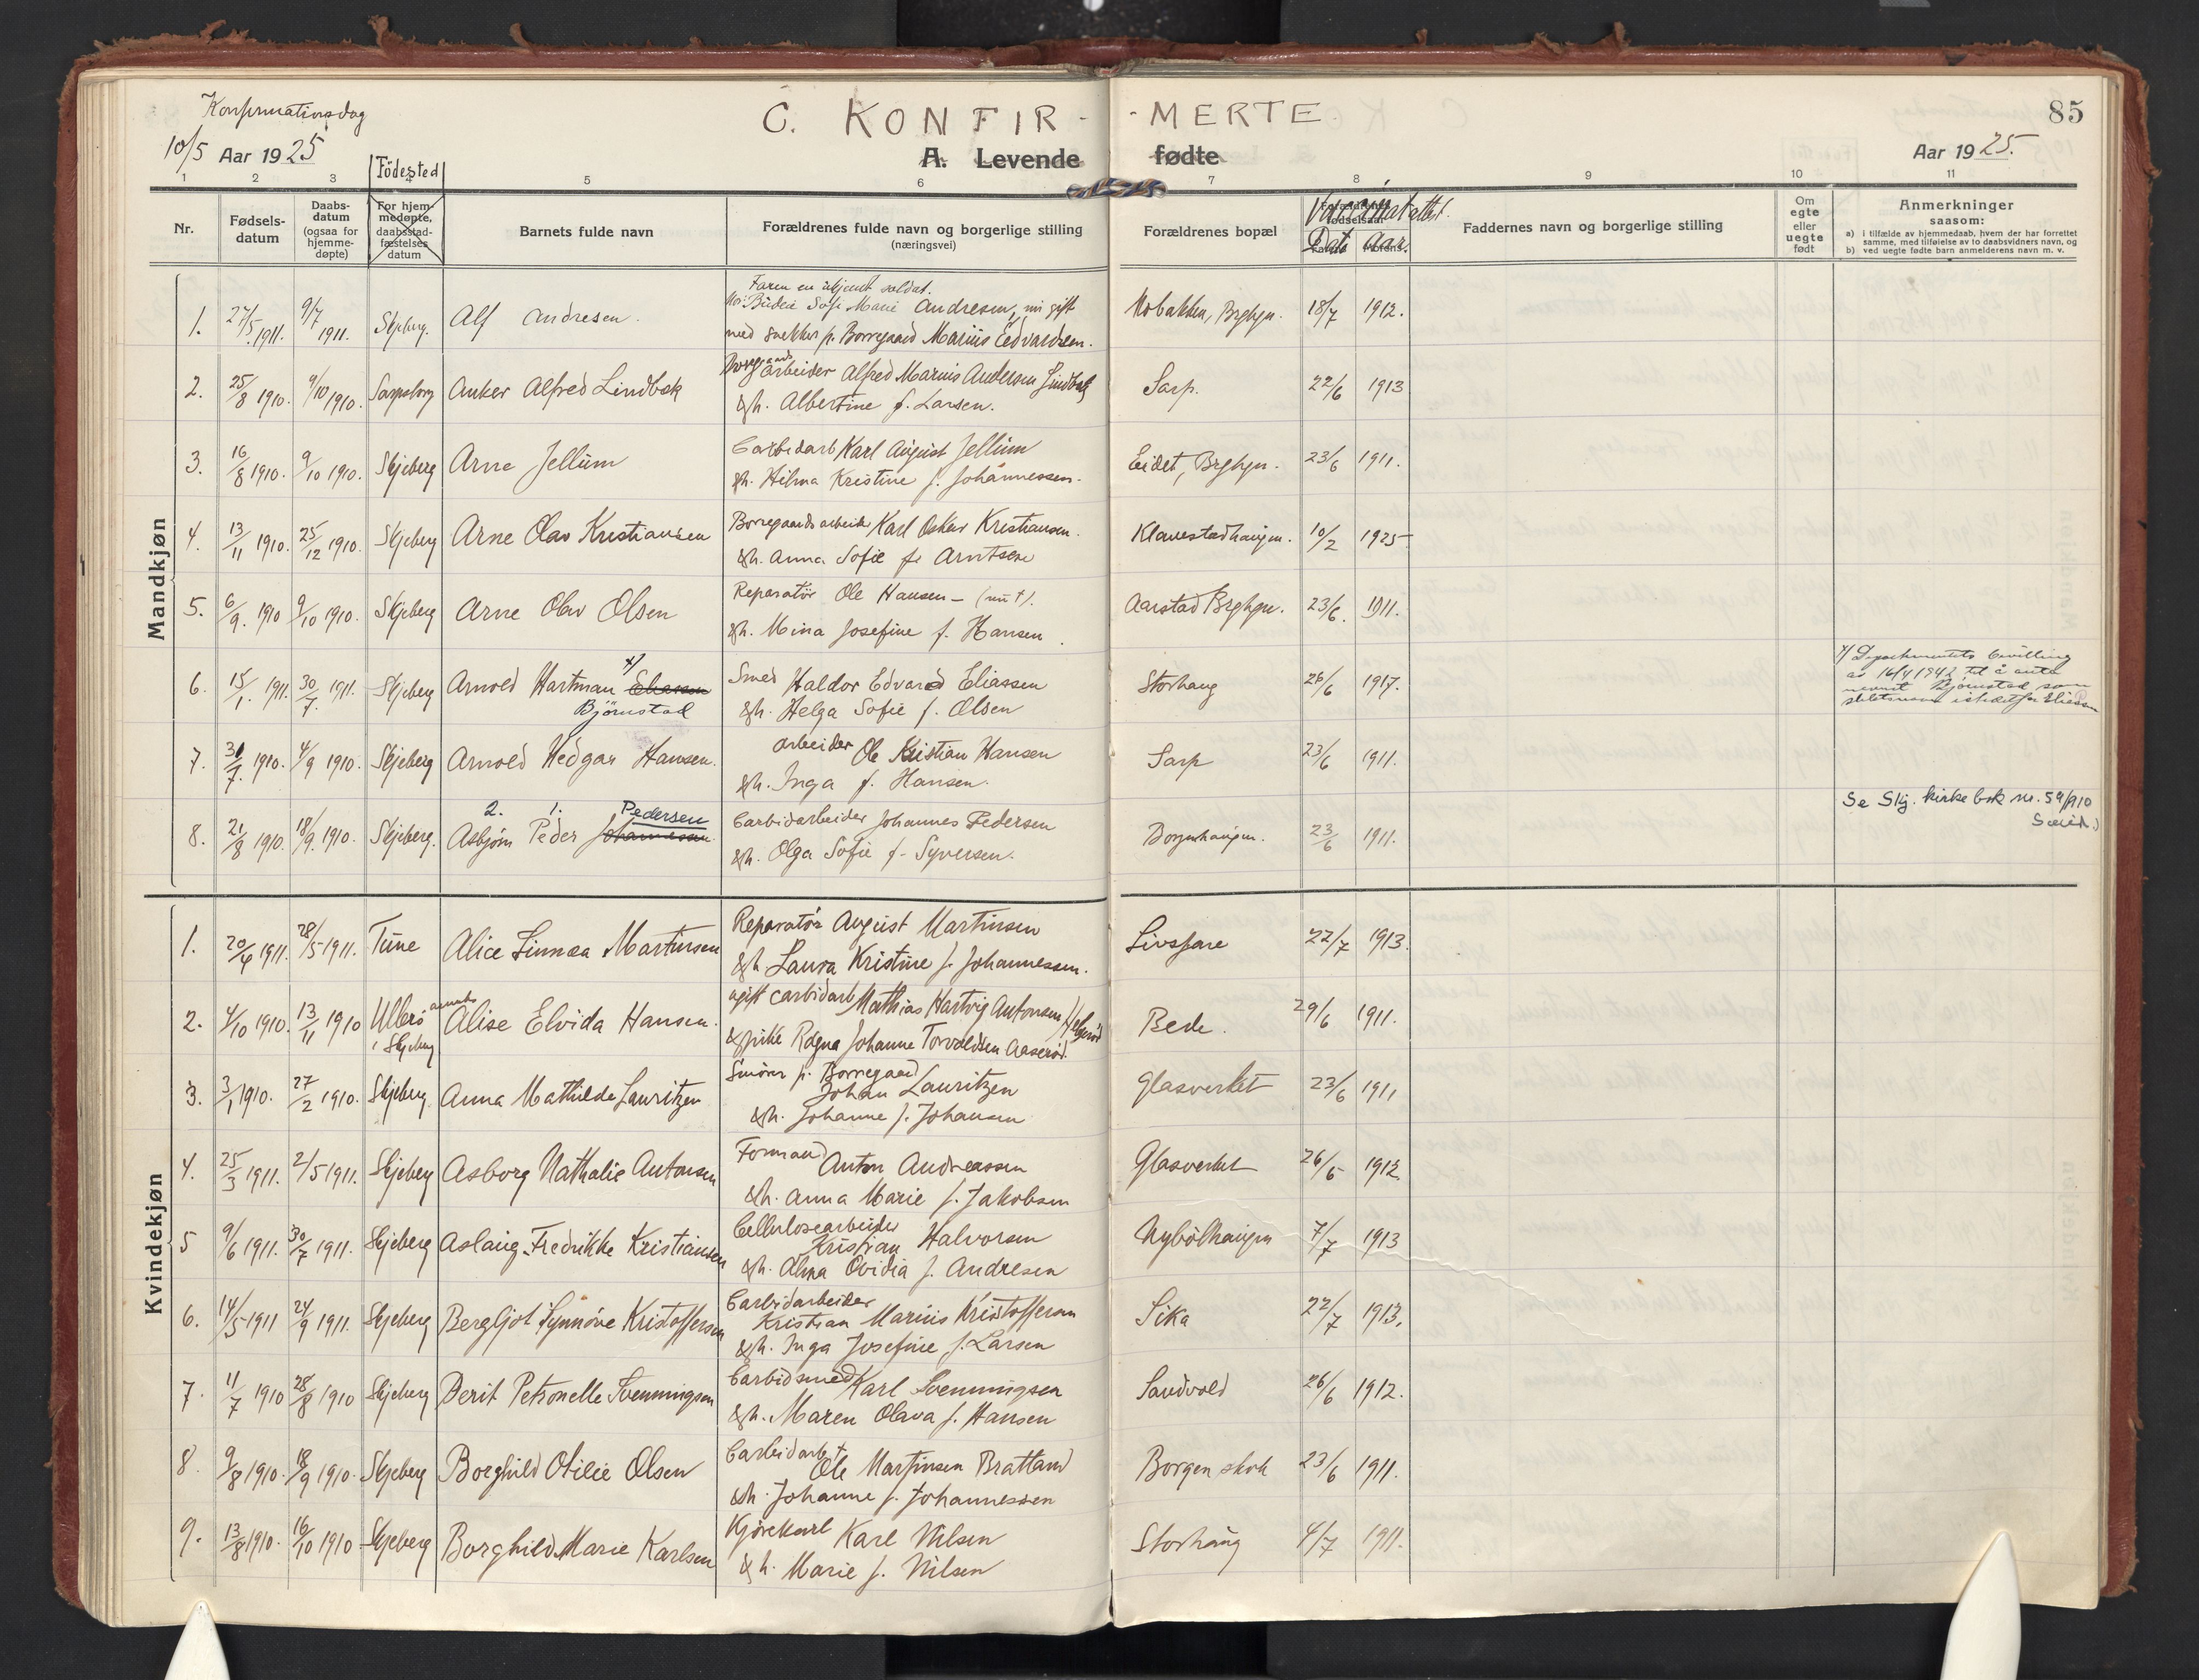 Konfirmationsdag
C. KONFIR-
-MERTE
85
10/5 Aar 1925
Fødested
A. Levende
fødte
Aar 1925.
1 2 3 4 5 6 7 8 9 10 11
Nr.
Fødsels-
datum
Daabs-
datum
(ogsaa for
hjemme-
døpte)
For hjem-
medøpte,
daabsstad-
fæstelses
datum
Barnets fulde navn
Forældrenes fulde navn og borgerlige stilling
(næringsvei)
Forældrenes bopæl
Dat Aar.
Faddernes navn og borgerlige stilling
Om
egte
eller
uegte
født
Anmerkninger
saasom:
a) i tilfælde av hjemmedaab, hvem der har forrettet
samme, med tilføielse av to daabsvidners navn, og
b) ved uegte fødte barn anmelderens navn m. v.
Mandkjøn
Faren en ukjent soldat.
Sofi Marie Andresen, nu gift
1. 27/5 1911. 9/7 1911. Skjeberg. Alf Andresen.
med snekker p. Borregaard Marius Edvardsen.
18/7 1912.
2. 25/8 1910. 9/10 1910. Sarpsborg Anker Alfred Lindbæk
Borregaards arbeider Alfred Marius Andersen Lindbæk
&h. Albertine f. Larsen.
Sarp. 22/6 1913
3. 16/8 1910. 9/10 1910. Skjeberg Arne Jellum
Carbidarb Karl August Jellum
&h. Hilma Kristine f. Johannessen.
Eidet, Brghgn. 23/6 1911.
4. 13/11 1910. 25/12 1910. Skjeberg Arne Olav Kristiansen
Borregaards arbeider Karl Oskar Kristiansen.
&h. Anna Sofie f. Arntsen
Klavestadhaugen. 10/2 1925
5. 6/9. 1910 9/10 1910. Skjeberg Arne Olav Olsen
Reparatør Ole Hansen – (nu †).
&h. Mina Josefine f. Hansen.
Aarstad Brghgn. 23/6. 1911.
6. 15/1. 1911. 30/7. 1911. Skjeberg Arnold Hartman x) Eliassen
Bjørnstad
Smed Haldor Edvard Eliassen
&h. Helga Sofie f. Olsen
Storhaug 26/6 1917.
x) Departementets bevilling
av 16/4 1942 til å anta
navnet Bjørnstad som
slektsnavn istedetfor Eliassen
7. 31/7. 1910. 4/9 1910. Skjeberg Arnold Hedgar Hansen.
Arbeider Ole Kristian Hansen
&h. Inga f. Hansen.
Sarp 23/6 1911.
2. 1. Pedersen
8. 21/8 1910. 18/9. 1910. Skjeberg. Asbjørn Peder Johannessen
Carbidarbeider Johannes Pedersen
&h. Olga Sofie f. Syversen.
Borgenhaugen. 23/6 1911.
Se Skj. kirkebok nr. 59/910
Kvindekjøn
1. 20/4 1911. 28/5 1911. Tune Alice Linnæa Martinsen
Reparatør August Martinsen
&h. Laura Kristine f. Johannessen.
22/7 1913.
2. 4/10 1910. 13/11 1910 Ullerø i Skjeberg Alise Elvida Hansen.
ugift carbidarb Mathias Hartvig Antonsen
& pike Ragna Johanne Torvaldsen Aaserød
Bede. 29/6 1911.
3. 3/1 1910. 27/2 1910. Skjeberg. Anna Mathilde Lauritzen
Smører p. Borregaard
Johan Lauritzen
&h. Johanne f. Johansen
Glasverket 23/6 1911
4. 25/3 1911. 2/5 1911. Skjeberg Asborg Nathalie Antonsen
Formand Anton Andreassen
&h. Anna Marie f. Jakobsen
Glasverket 26/6 1912
5 9/6 1911. 30/7 1911. Skjeberg Aslaug Fredrikke Kristiansen
Cellulosearbeider
Kristian Halvorsen
&h. Alma Ovidia f. Andresen
Nybølhaugen 7/7 1913
6. 14/5 1911 24/9 1911. Skjeberg Bergljot Synnøve Kristoffersen
Carbidarbeider
Kristian Marius Kristoffersen
&h. Inga Josefine f. Larsen
Sika 22/7 1913.
7. 11/7 1910 28/8 1910 Skjeberg Berit Petronelle Svenningsen
Carbidsmed Karl Svenningsen
&h. Maren Olava f. Hansen
Sandvold 26/6 1912.
8. 9/8 1910. 18/9 1910. Skjeberg Borghild Otilie Olsen
Carbidarb †
Ole Martinsen Bratland
&h. Johanne f. Johannessen
Borgen skole 23/6 1911.
9. 13/8 1910. 16/10 1910 Skjeberg Borghild Marie Karlsen
Kjørekarl Karl Nilsen
&h. Marie f. Nilsen
Storhaug 4/7 1911.